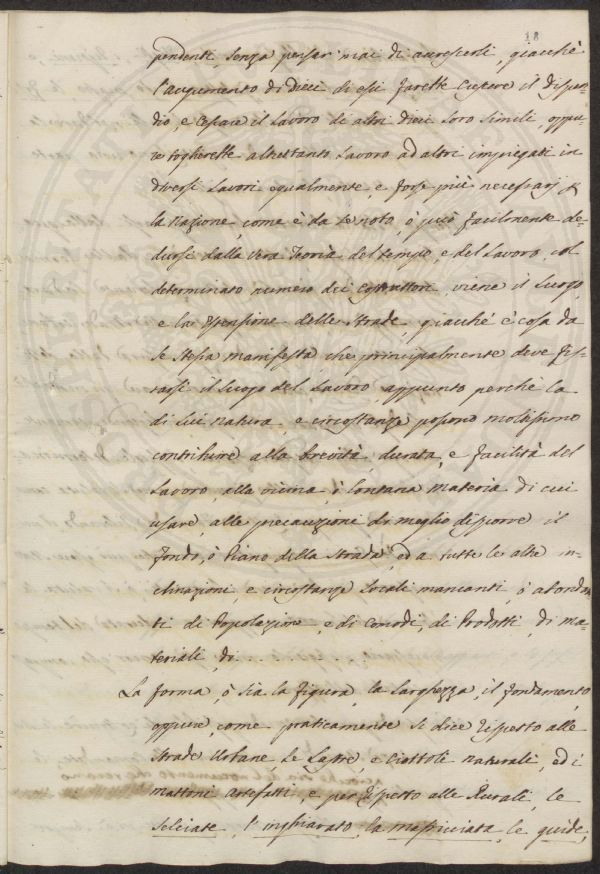 18
pendenti senza pensar mai di accrescerli, giacchè
l'augumento di Dieci di essi farebbe Crescere il dispen-
dio, e Cessare il Lavoro di altri dieci loro simili, oppu-
re toglierebbe altrettanto Lavoro ad altri impiegati in
diversi Lavori egualmente, e forse più necessarj
la Nazione come è da se noto, ò può facilmente de-
dursi dalla vera Teoria del tempo, e del Lavoro, col
determinato numero dei Costruttori viene il Luogo,
e la Estensione delle Strade, giacché è cosa da
se stessa manifesta che principalmente deve fis-
sarsi il Luogo del Lavoro, appunto perchè la
di lui natura, e circostanze possono moltissimo
contribuire alla brevità, durata, e facilità del
Lavoro, alla vicina, ò lontana materia di cui
usare, alle precauzioni di meglio disporre il
fondo, ò Piano della Strada, ed a tutte le altre in-
clinazioni, e circostanze Locali mancanti, ò abondan
ti di Popolazione, e di Comodi, di Prodotti, di ma-
teriali, di . . .
La forma, ò sia la figura, la larghezza, il fondamento,
oppure, come praticamente si dice rispetto alle
Strade Urbane Le Lastre, e Ciottoli naturali, ed i
mattoni artefatti, e per rispetto alle Rurali, le
Selciate, l'inghiarato, la massicciata, le guide,